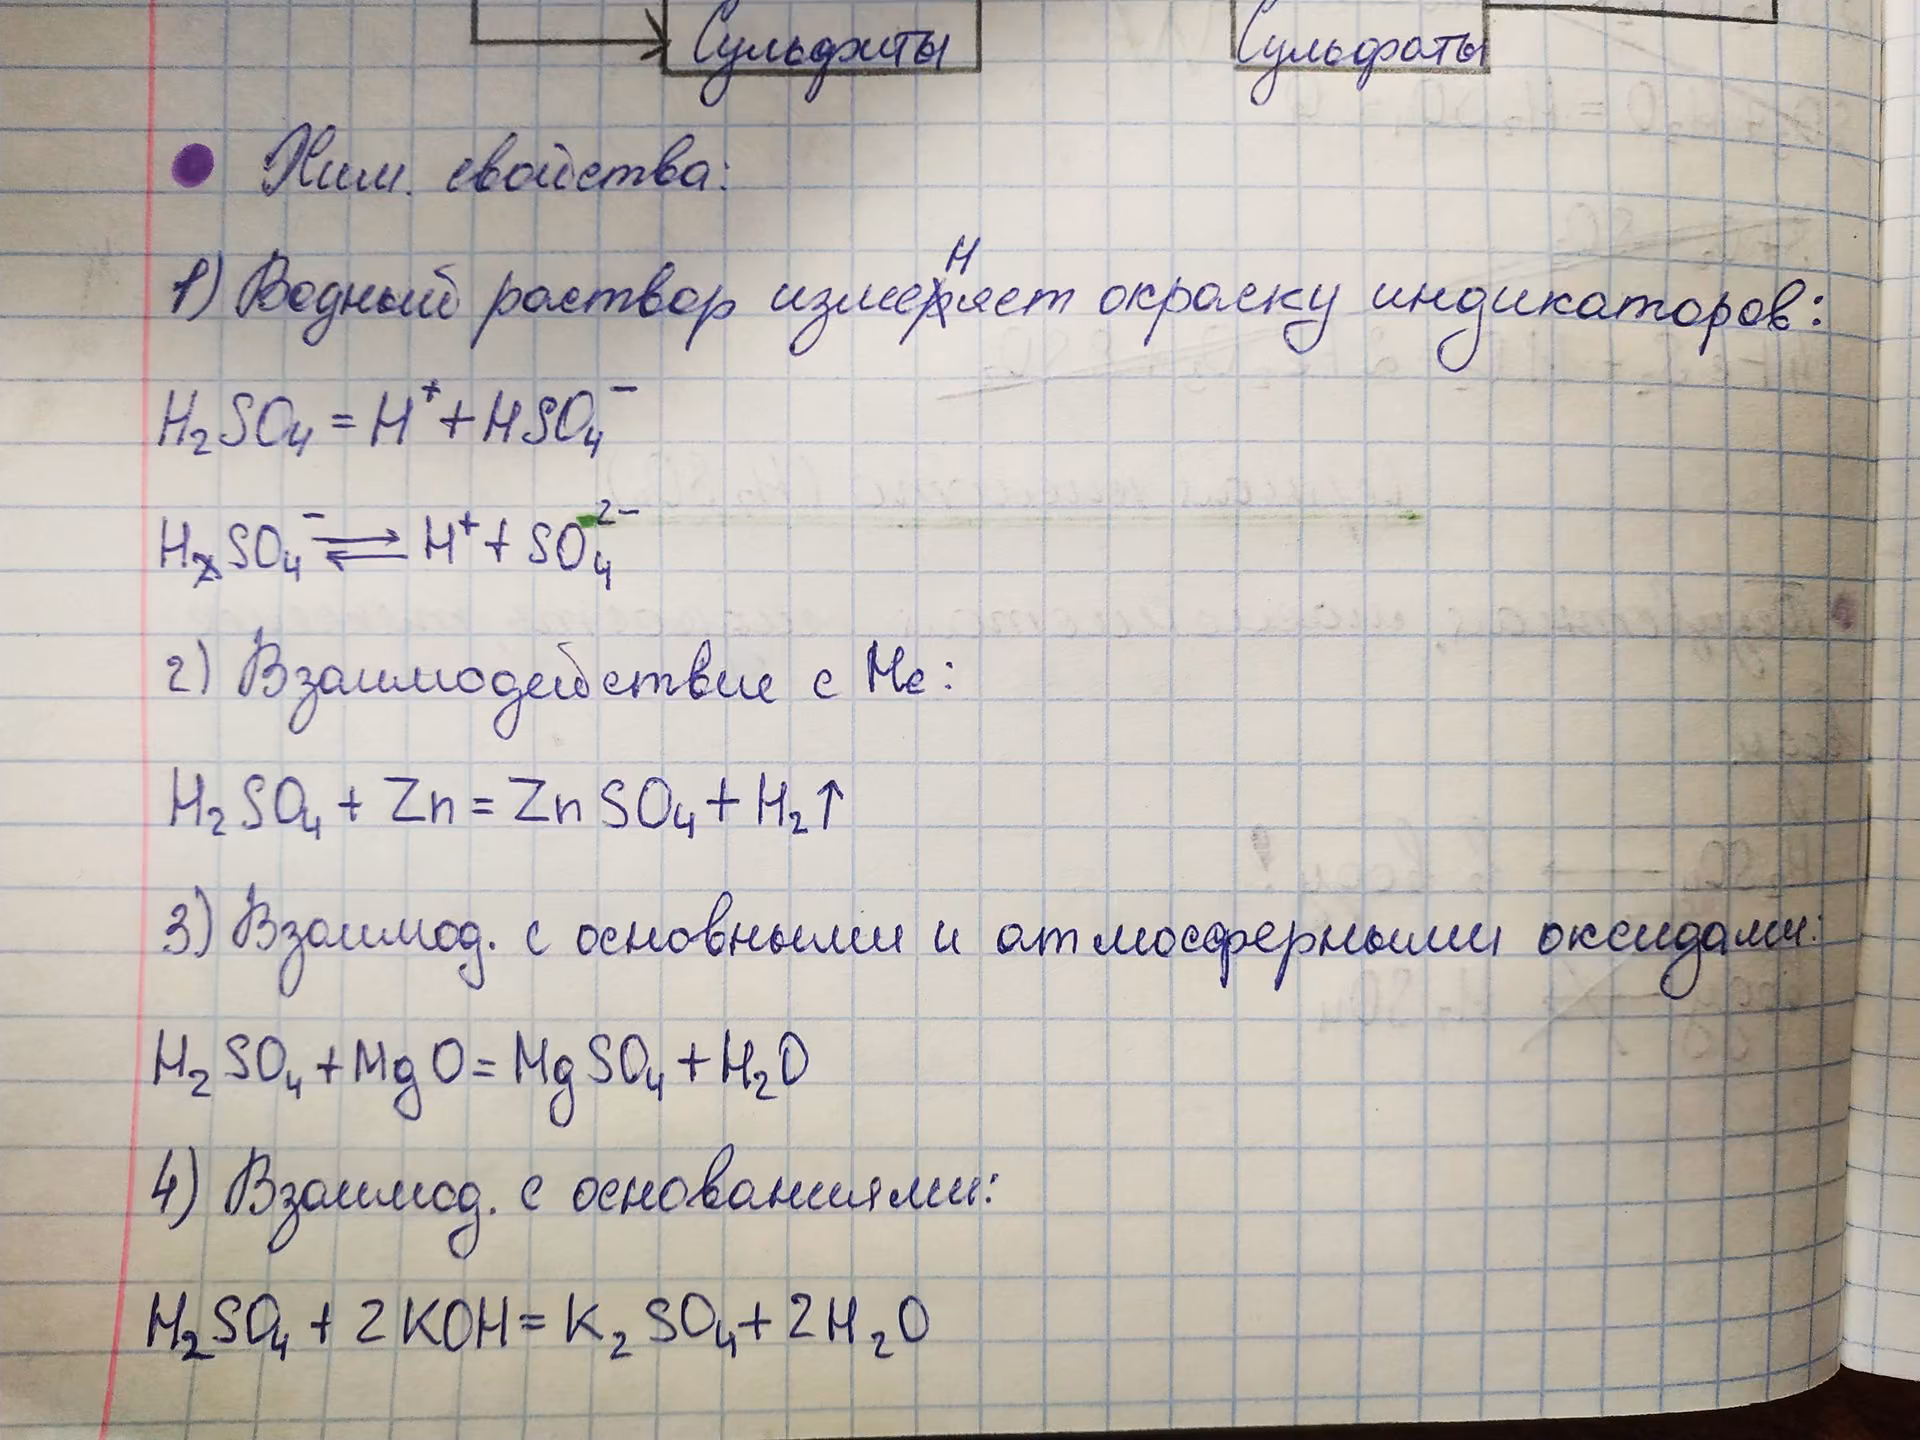 Сульфиты Сульфаты
Хим. свойства:
1) Водный раствор изменяет окраску индикаторов:
H₂SO₄ = H⁺ + HSO₄⁻
HSO₄⁻ ⇄ H⁺ + SO₄²⁻
2) Взаимодействие с Ме:
H₂SO₄ + Zn = ZnSO₄ + H₂↑
3) Взаимод. с основными и атмосферными оксидами:
H₂SO₄ + MgO = MgSO₄ + H₂O
4) Взаимод. с основаниями:
H₂SO₄ + 2KOH = K₂SO₄ + 2H₂O